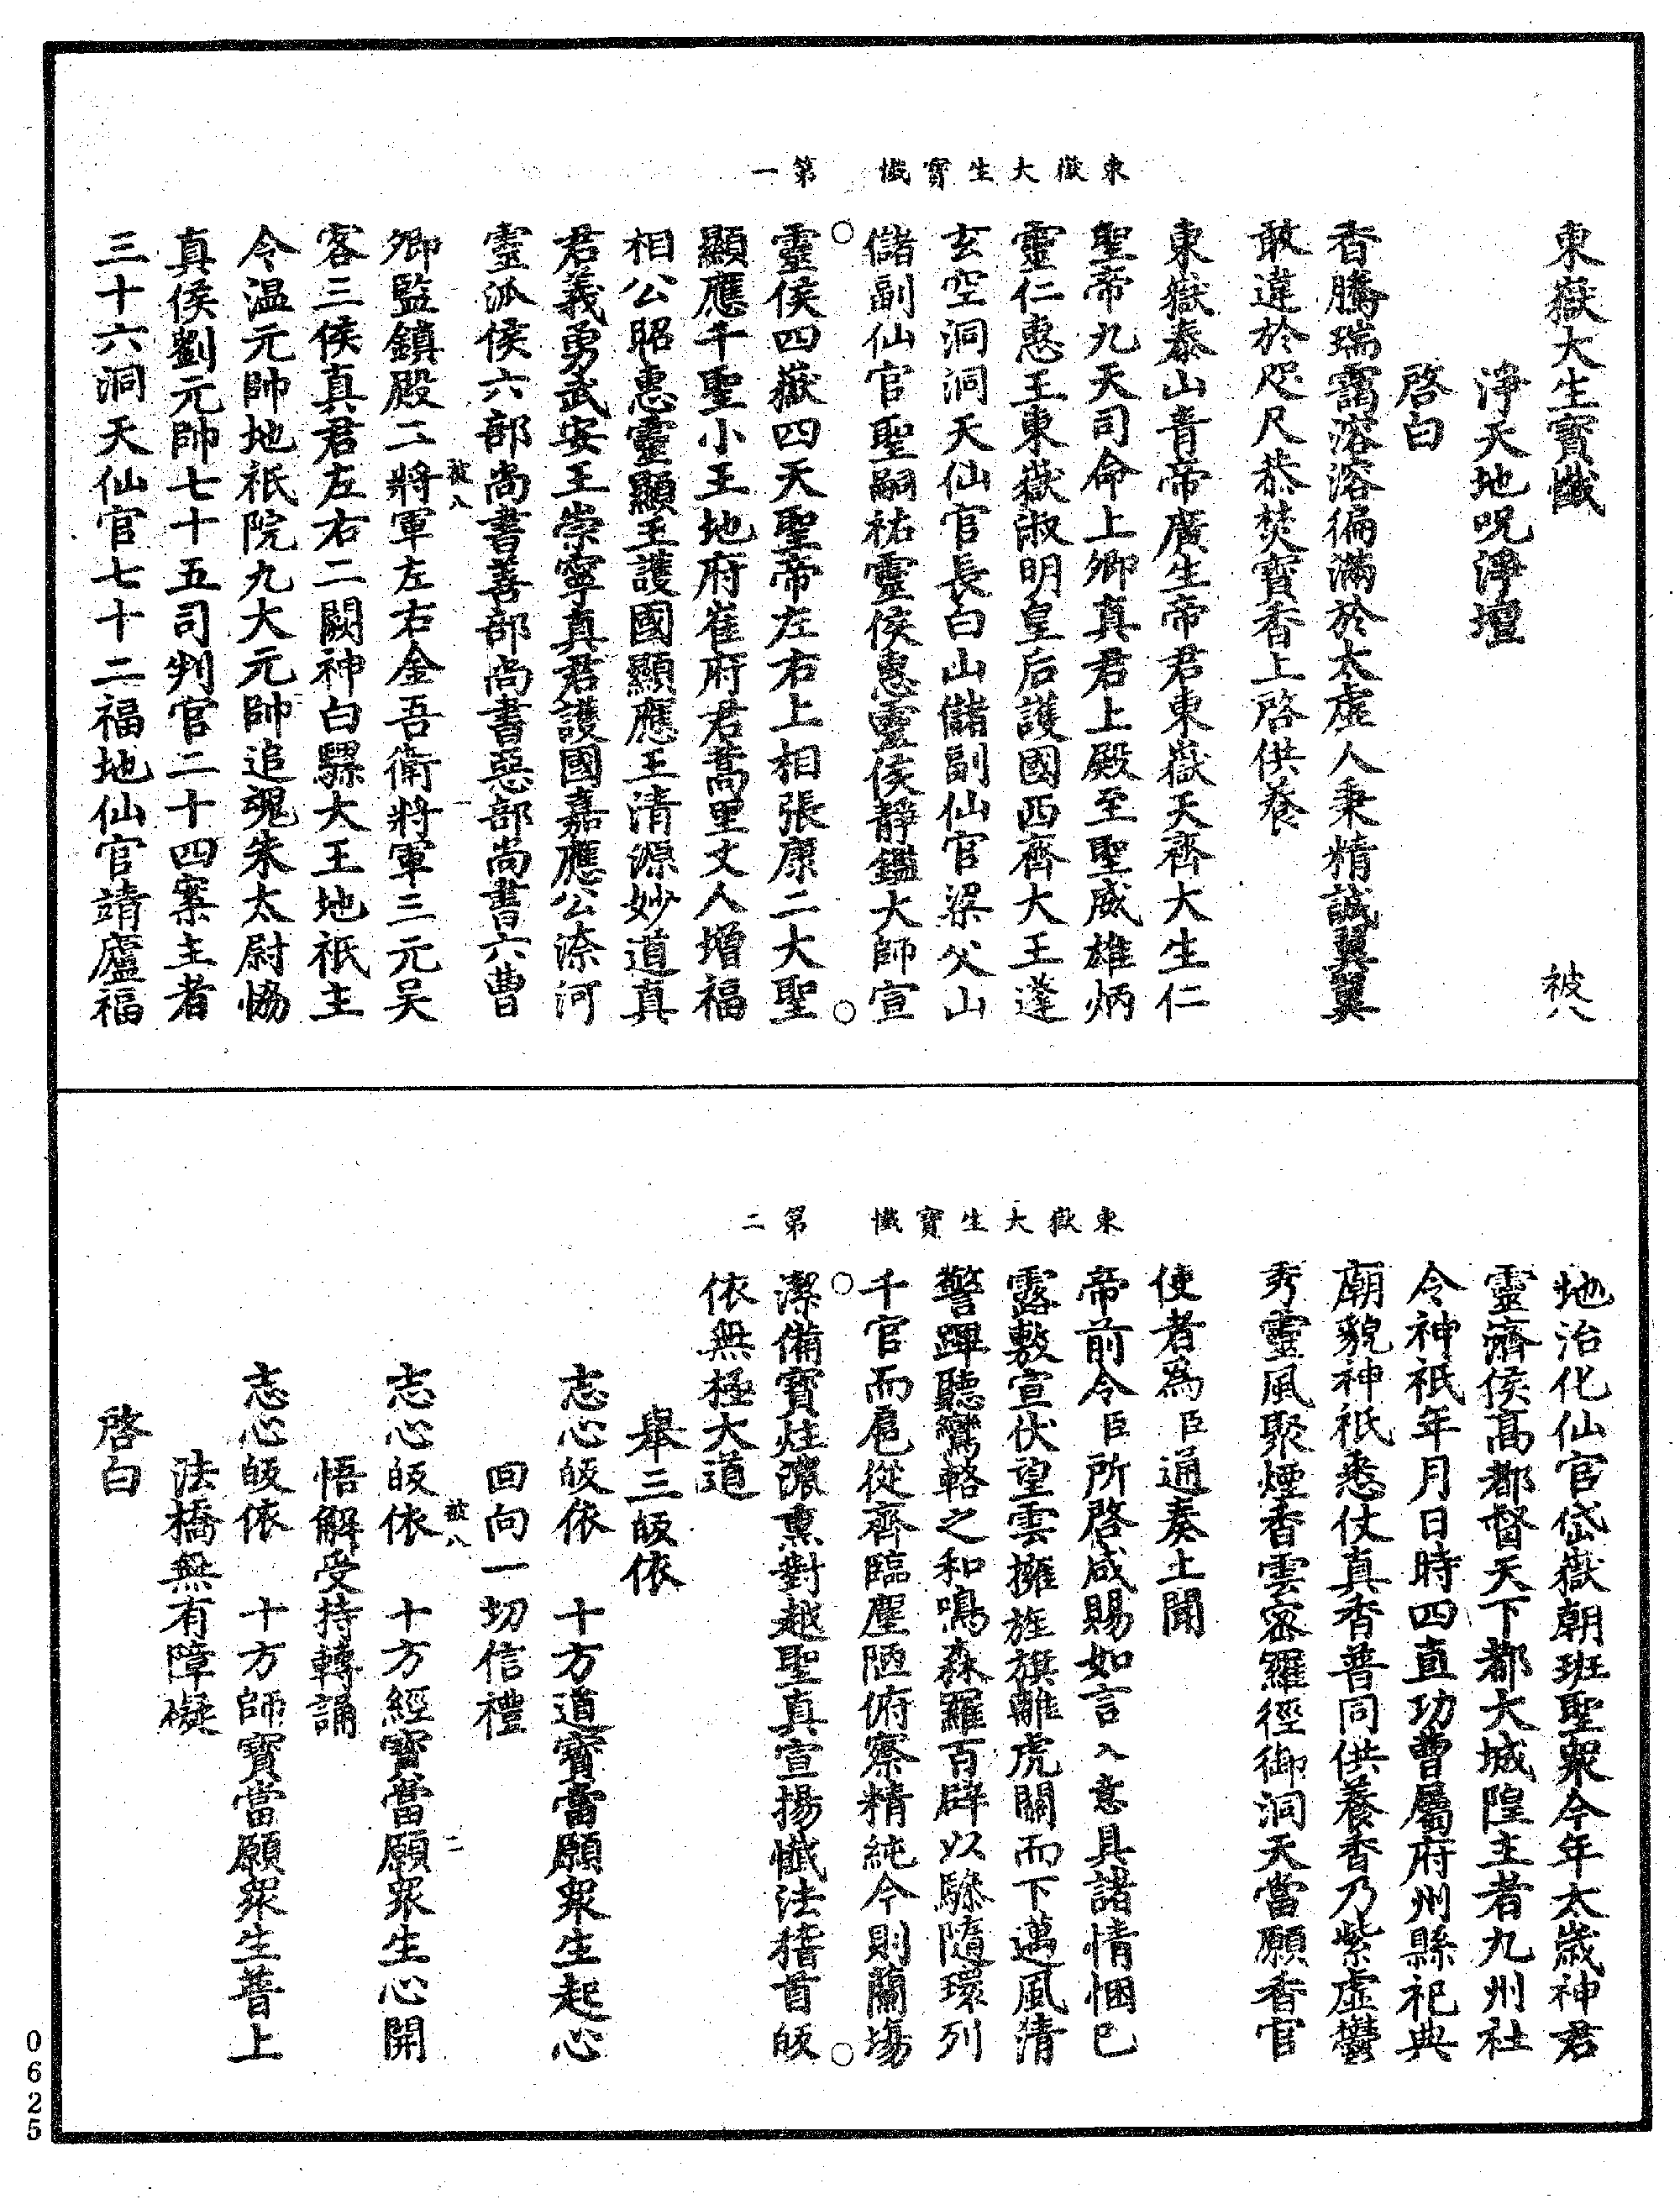 東嶽大生寶懺　第一
東嶽大生寶懺　被八
淨天地呪淨壇
啓白
香騰瑞靄溶溶徧滿於太虛人秉精誠翼翼
敢違於咫尺恭焚寶香上啓供養
東嶽泰山青帝廣生帝君東嶽天齊大生仁
聖帝九天司命上卿真君上殿至聖威雄炳
靈仁惠王東嶽淑明皇后護國西齊大王蓬
玄空洞洞天仙官長白山儲副仙官梁父山
儲副仙官聖嗣祐靈侯惠靈侯靜鑑大師宣
靈侯四嶽四天聖帝左右上相張康二大聖
顯應千聖小王地府崔府君蒿里丈人增福
相公昭惠靈顯王護國顯應王清源妙道真
君義勇武安王崇寧真君護國嘉應公渿河
靈派侯六部尚書善部尚書惡部尚書六曹
被八　一
卿監鎮殿二將軍左右金吾衛將軍三元吴
客三侯真君左右二闕神白騾大王地祇主
令温元帥地祇院九大元帥追䰟朱太尉協
真侯劉元帥七十五司判官二十四案主者
三十六洞天仙官七十二福地仙官靖廬福
東嶽大生寶懺　第二
地治化仙官岱嶽朝班聖衆今年太歲神君
靈濟侯高都督天下都大城隍主者九州社
令神祇年月日時四直功曹屬府州縣祀典
廟貌神祇悉仗真香普同供養香乃紫虛鬱
秀靈風聚煙香雲密羅徑御洞天當願香官
使者爲臣通奏上聞
帝前令臣所啓咸賜如言入意具諸情悃已
露敷宣伏望雲擁旌旗離虎關而下邁風清
警蹕聽鸞輅之和鳴森羅百辟以驂隨環列
千官而扈從齊臨塵陋俯察精純今則蘭場
潔備寶炷濃熏對越聖真宣揚懺法稽首皈
依無極大道
舉三皈依
志心皈依　十方道寶當願衆生起心
回向一切信禮
被八　二
志心皈依　十方經寶當願衆生心開
悟解受持轉誦
志心皈依　十方師寶當願衆生普上
法橋無有障礙
啓白
0625